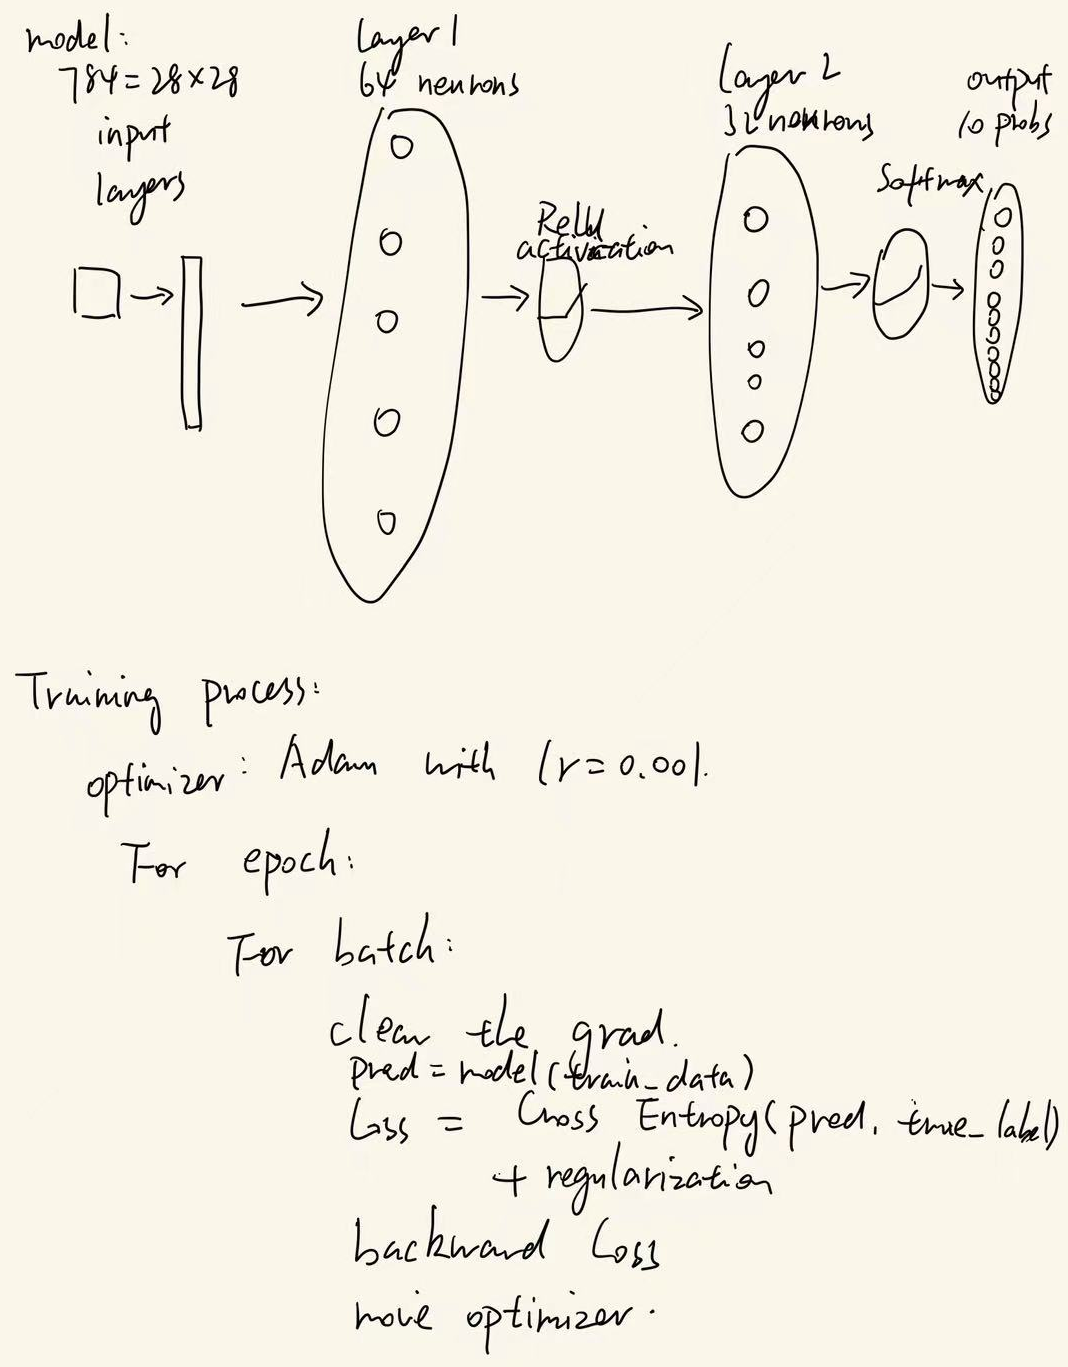 model:
784 = 28×28
input
layers
Layer 1
64 neurons
ReLU
activation
Layer 2
32 neurons
Softmax
output
10 probs
Training process:
optimizer: Adam with lr = 0.001.
For epoch:
For batch:
clean the grad.
pred = model(train_data)
Loss = Cross Entropy(pred, true_label)
+ regularization
backward Loss
move optimizer.